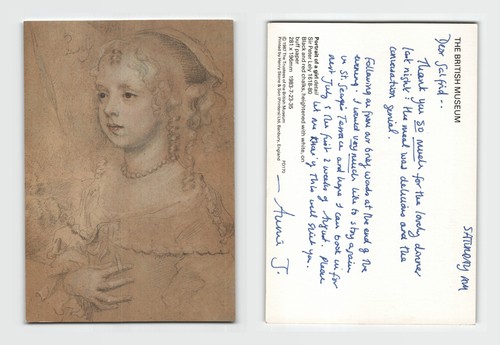 THE BRITISH MUSEUM
SATURDAY AM
Dear Salfrid --
Thank you SO much for the lovely dinner
last night! The meal was delicious and the
conversation genial.
Following up from our brief words at the end of the
evening: I would very much like to stay again
in St. George's Terrace and hope I can book in for
next July & the first 2 weeks of August. Please
let me know if this will suit you.
— Annie J.
Portrait of a girl detail
Sir Peter Lely 1618-80
Black and red chalks, heightened with white, on
buff paper
281 x 196mm 1983-7-23-35
© 1987 The Trustees of the British Museum
PD170
Printed by Henry Stone & Son (Printers) Ltd, Banbury, England